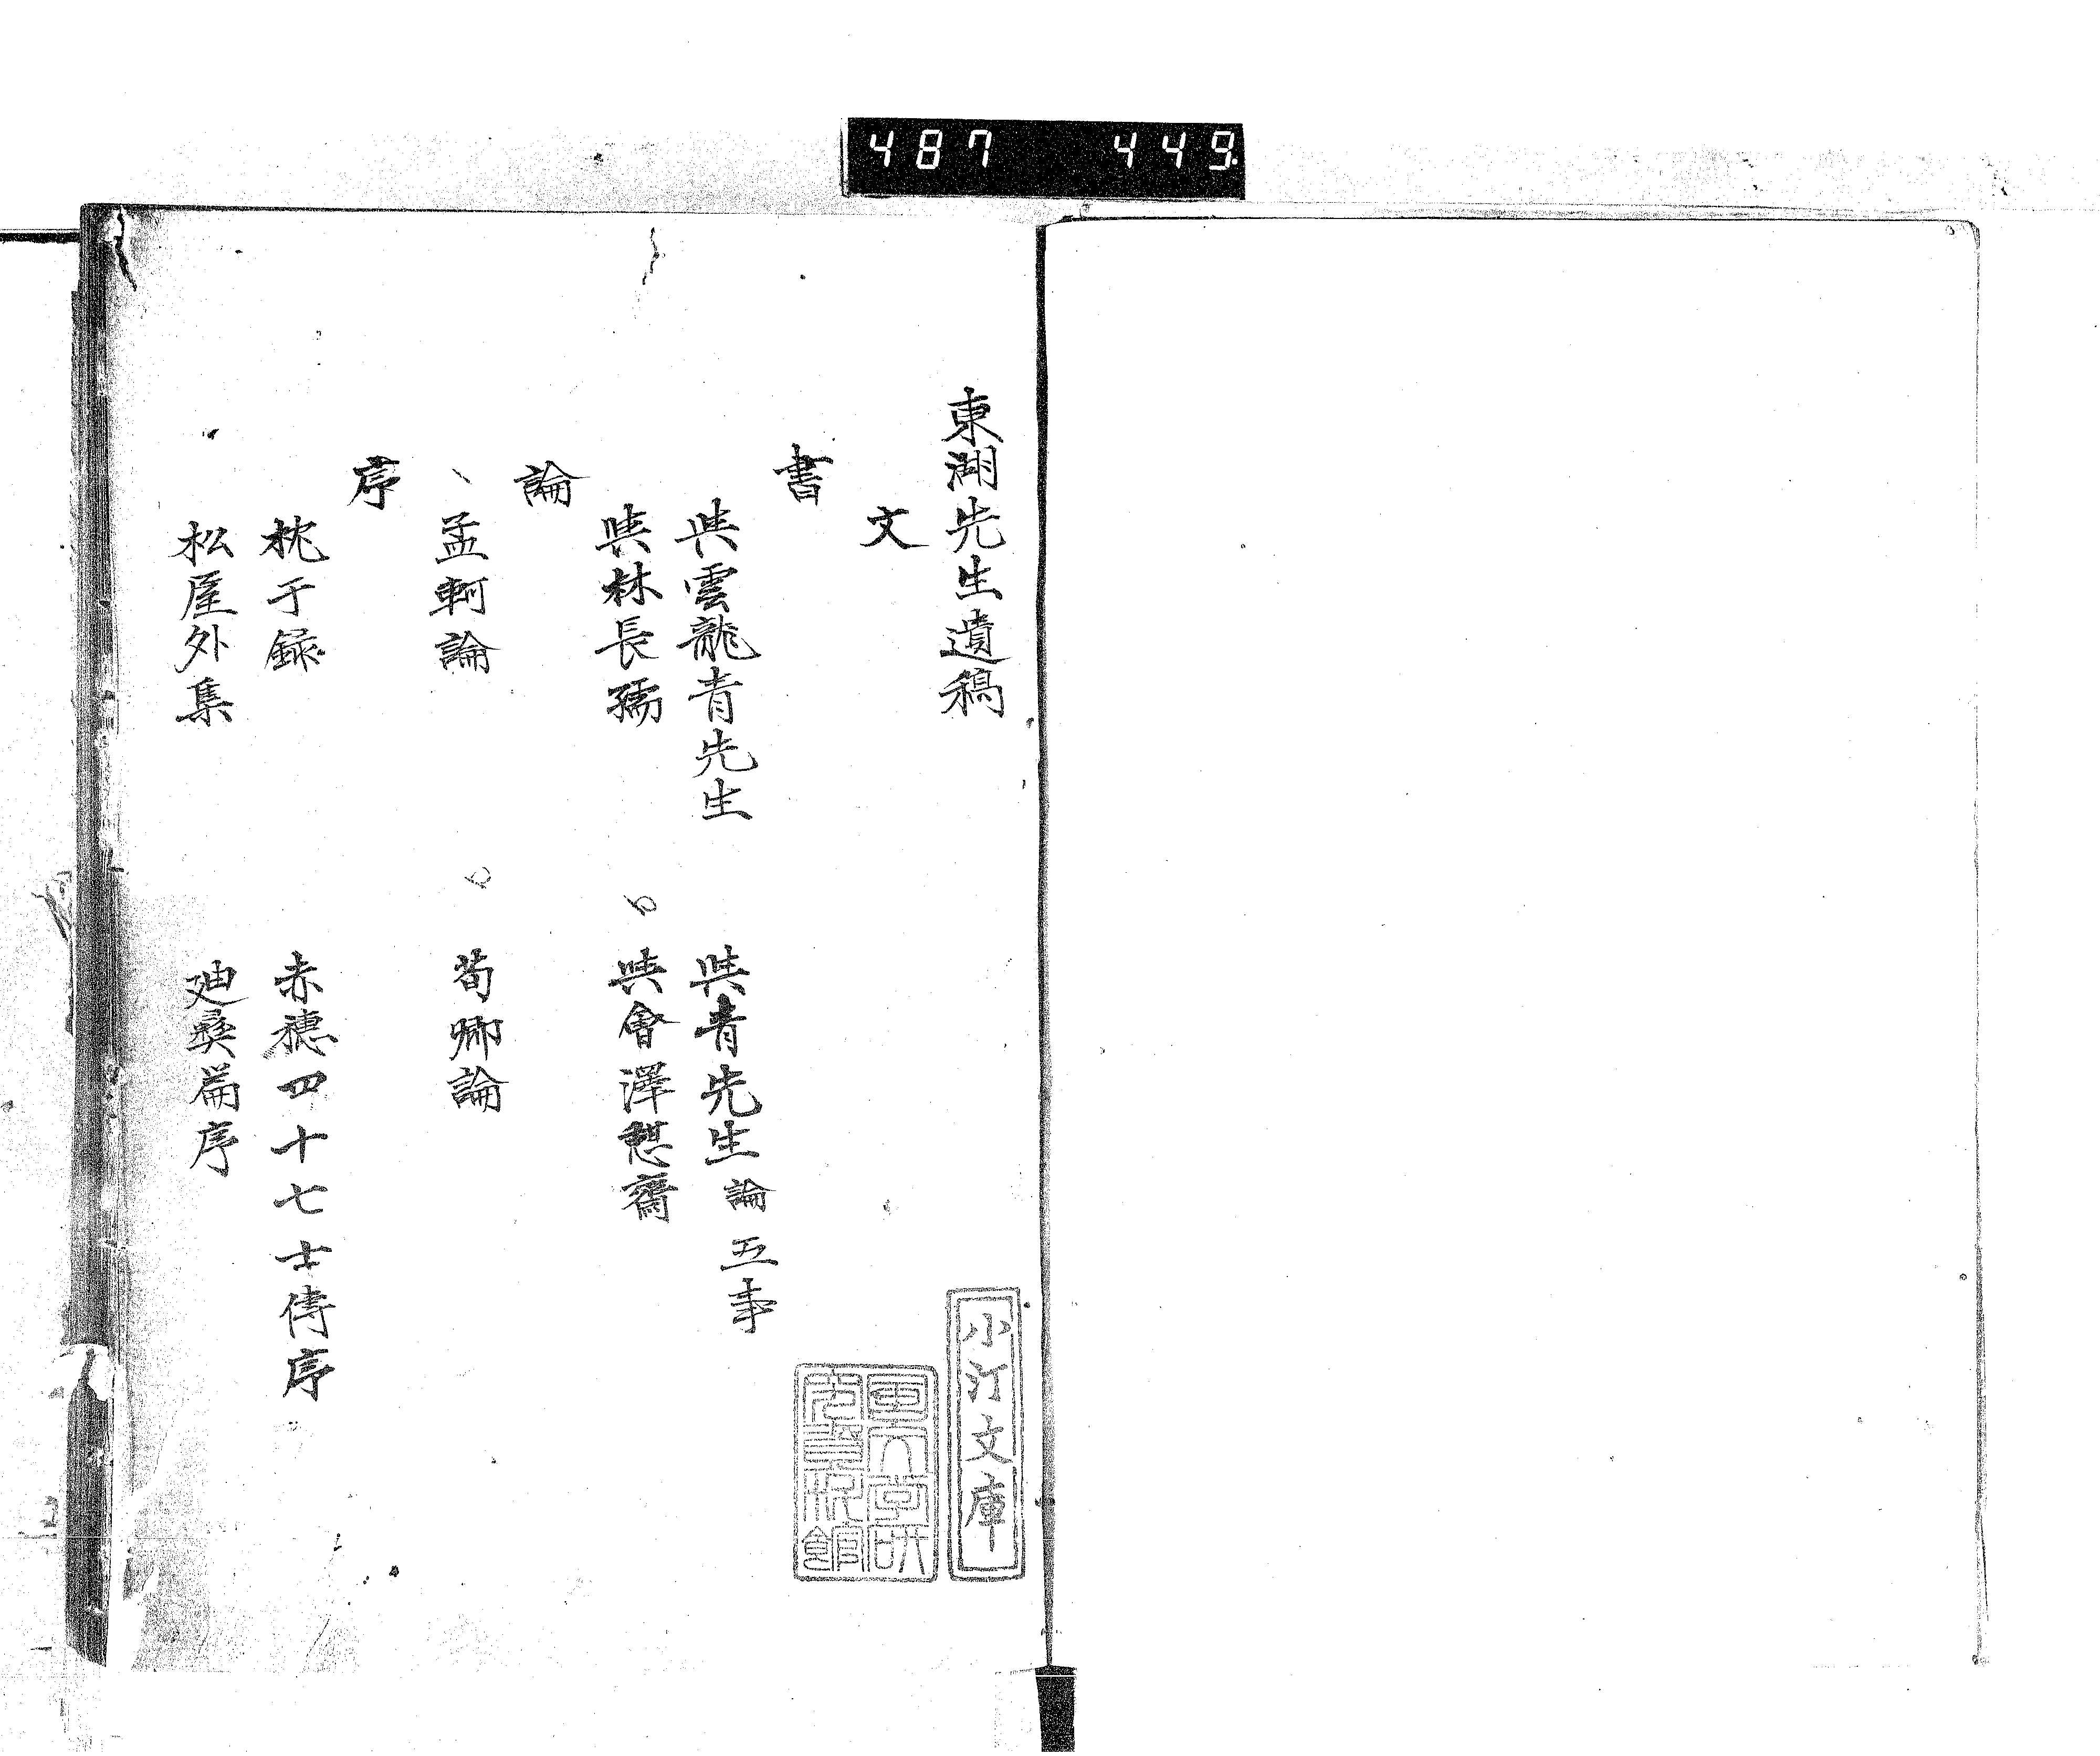 487 449
東湖先生遺稿
文
書
與雲龍青先生 與青先生論五事
與林長孺 與會澤憩齋
論
孟軻論 荀卿論
序
枕于録 赤穗四十七士傳序
松屋外集 廸彛篇序
小汀文庫